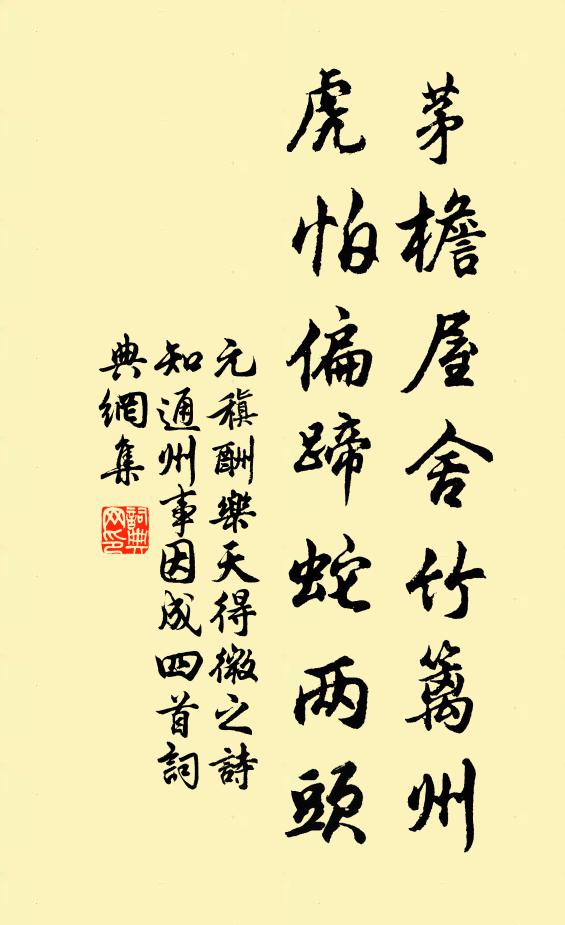 茅檐屋舍竹籬州
虎怕偏蹄蛇两頭
元稹酬樂天得微之詩
知通州事因成四首詞
典網集
詞典网印